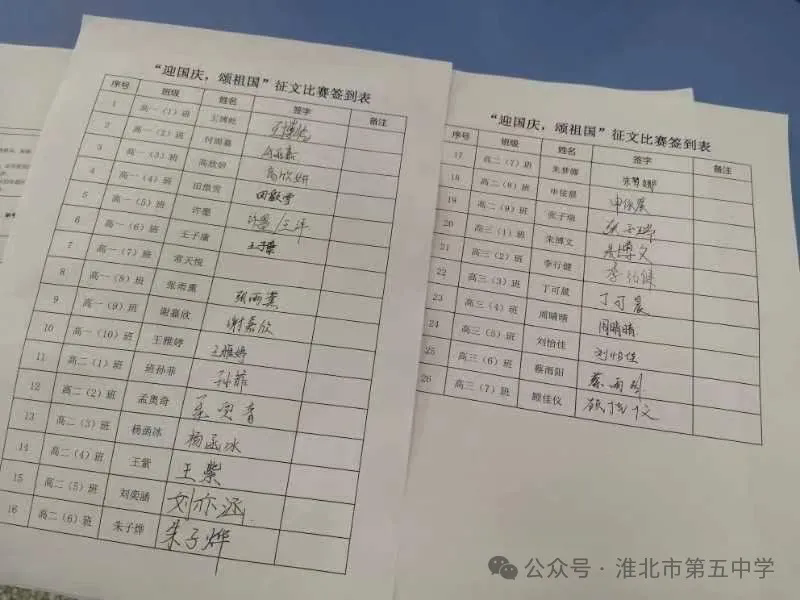 “迎国庆，颂祖国”征文比赛签到表
序号 班级 姓名 签字 备注
1 高一（1）班 王博屹
2 高一（2）班 付雨嘉
3 高一（3）班 高欣妍 高欣妍
4 高一（4）班 田歆雯 田歆雯
5 高一（5）班 许墨
6 高一（6）班 王子蕖 王子蕖
7 高一（7）班 常天悦
8 高一（8）班 张雨熏 张雨熏
9 高一（9）班 谢嘉欣 谢嘉欣
10 高一（10）班 王雅婷 王雅婷
11 高二（1）班 班孙菲 孙菲
12 高二（2）班 孟奥奇
13 高二（3）班 杨函冰 杨函冰
14 高二（4）班 王紫 王紫
15 高二（5）班 刘奕涵 刘亦涵
16 高二（6）班 朱子烨 朱子烨
“迎国庆，颂祖国”征文比赛签到表
序号 班级 姓名 签字 备注
17 高二（7）班 朱梦娜 朱梦娜
18 高二（8）班 申依晨 申依晨
19 高二（9）班 张子瑞 张子瑞
20 高三（1）班 朱博文 朱博文
21 高三（2）班 李行健 李行健
22 高三（3）班 丁可晨 丁可晨
23 高三（4）班 周晴晴 周晴晴
24 高三（5）班 刘怡佳 刘怡佳
25 高三（6）班 蔡雨阳 蔡雨阳
26 高三（7）班 顾佳仪
公众号·淮北市第五中学